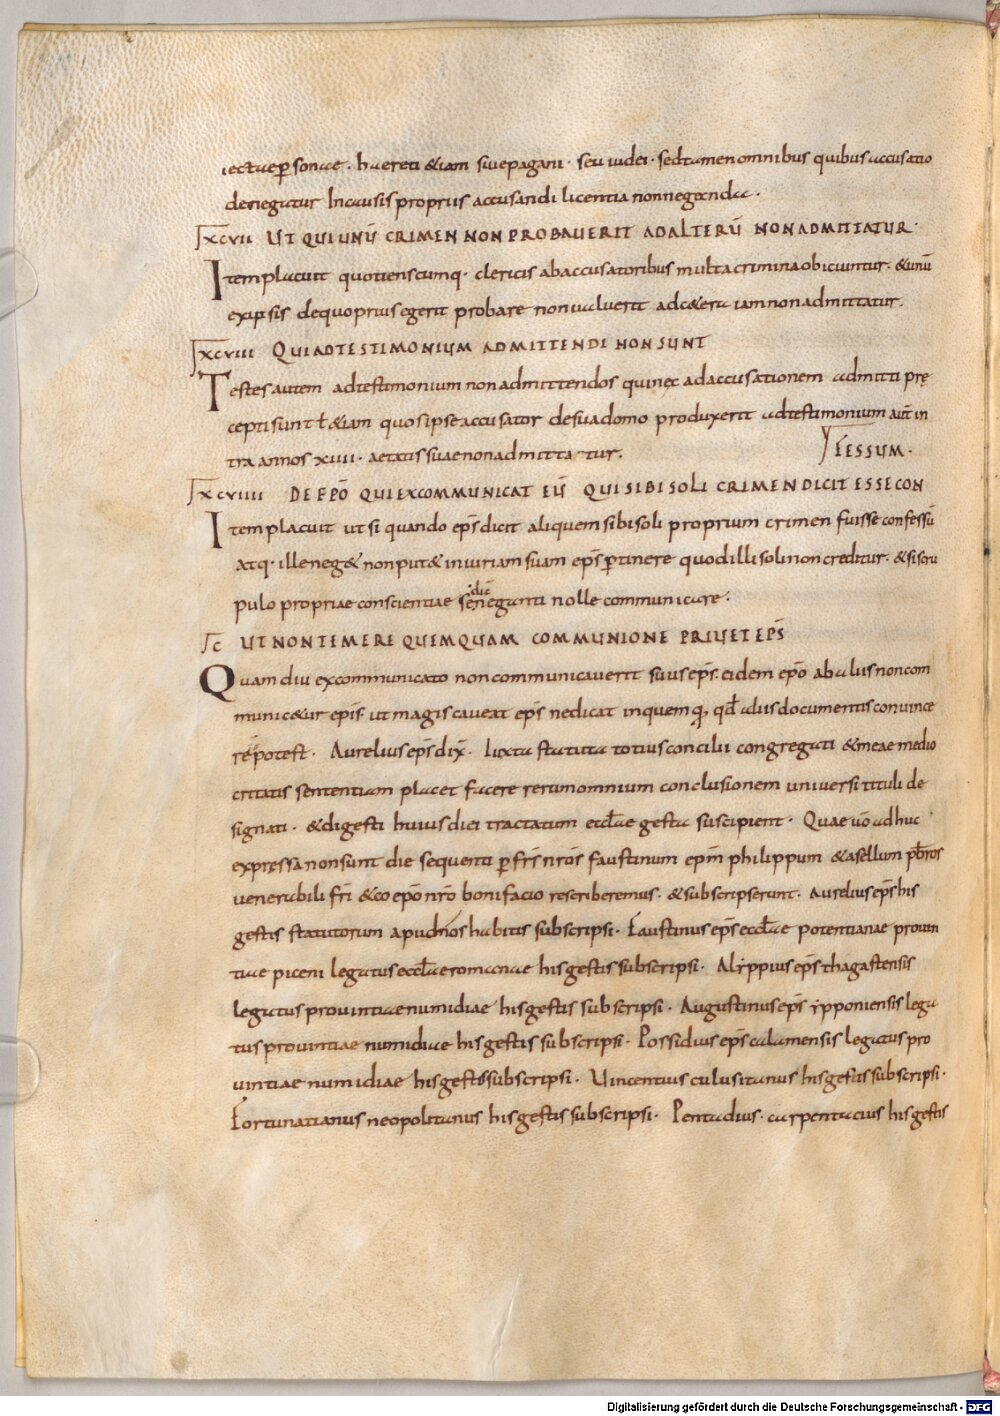 iectae ꝑsonae · heretici &iam siue pagani · seu iudei · sed tamen omnibus quibus accusatio
denegatur In causis propriis accusandi licentia non neganda ·
XCVII UT QUI UNŪ CRIMEN NON PROBAUERIT AD ALTERŪ NON ADMITTATUR ·
Item placuit quotienscumq· clericis ab accusatoribus multa crimina obiciuntur · & unū
ex ipsis de quo prius egerit probare non ualuerit ad c&era iam non admittatur ·
XCVIII QUI AD TESTIMONIUM ADMITTENDI NON SUNT
Testes autem ad testimonium non admittendos qui nec ad accusationem admitti prę
cepti sunt ł &iam quos ipse accusator de sua domo produxerit ad testimonium aut̄ in
tra annos XIIII · aetatis suae non admittatur ·
FESSUM ·
XCVIIII DE EPŌ QUI EXCOMMUNICAT EŪ QUI SIBI SOLI CRIMEN DICIT ESSE CON
Item placuit ut si quando ep̄s dicit aliquem sibi soli proprium crimen fuisse confessū
atq· ille neg& non put& iniuriam suam ep̄s ꝑtinere quod illi soli non creditur · & si scru
pulo propriae conscientiae se dic& neganti nolle communicare ·
C UT NON TEMERE QUEMQUAM COMMUNIONE PRIUET EP̄S
Quam diu excommunicato non communicauerit suus ep̄s · eidem ep̄o ab aliis non com
munic&ur ep̄is · ut magis caueat ep̄s ne dicat in quemq̨ qd̄ aliis documentis conuince
re potest · Aurelius ep̄s dix̄ · Iuxta statuta totius concilii congregati & meae medio
critatis sententiam placet facere rerum omnium conclusionem uniuersi tituli de
signati · & digesti huius diei tractatum eccl̄ae gesta suscipient · Quae uō adhuc
expressa non sunt die sequenti ꝑ fr̄s nr̄os faustinum ep̄m philippum & asellum pb̄ros
uenerabili fr̄i & coep̄o nr̄o bonifacio rescriberemus · & subscripserunt · Aurelius ep̄s his
gestis statutorum apud nos habitis subscripsi · Faustinus ep̄s eccl̄ae potentianae prouin
tiae piceni legatus eccl̄ae romanae his gestis subscripsi · Alẏppius ep̄s thagastensis
legatus prouintiae numidiae his gestis subscripsi · Augustinus ep̄s ypponiensis lega
tus prouintiae numidiae his gestis subscripsi · Possidius ep̄s calamensis legatus pro
uintiae numidiae his gestis subscripsi · Uincentius culusitanus his gestis subscripsi ·
Fortunatianus neopolitanus his gestis subscripsi · Pentadius · carpentacius his gestis
Digitalisierung gefördert durch die Deutsche Forschungsgemeinschaft - DFG